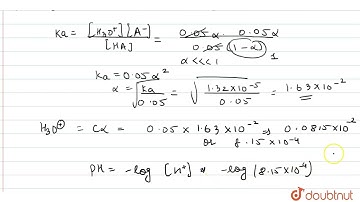 Ka = [H3O+][A-] / [HA] = 0.05α . 0.05α / 0.05(1-α)
α <<< 1
Ka = 0.05 α²
α = √(Ka / 0.05) = √(1.32×10⁻⁵ / 0.05) = 1.63×10⁻²
H3O⊕ = Cα = 0.05 × 1.63×10⁻² ⇒ 0.0815×10⁻²
or 8.15×10⁻⁴
PH = -log [H+] = -log (8.15×10⁻⁴)
doubtnut